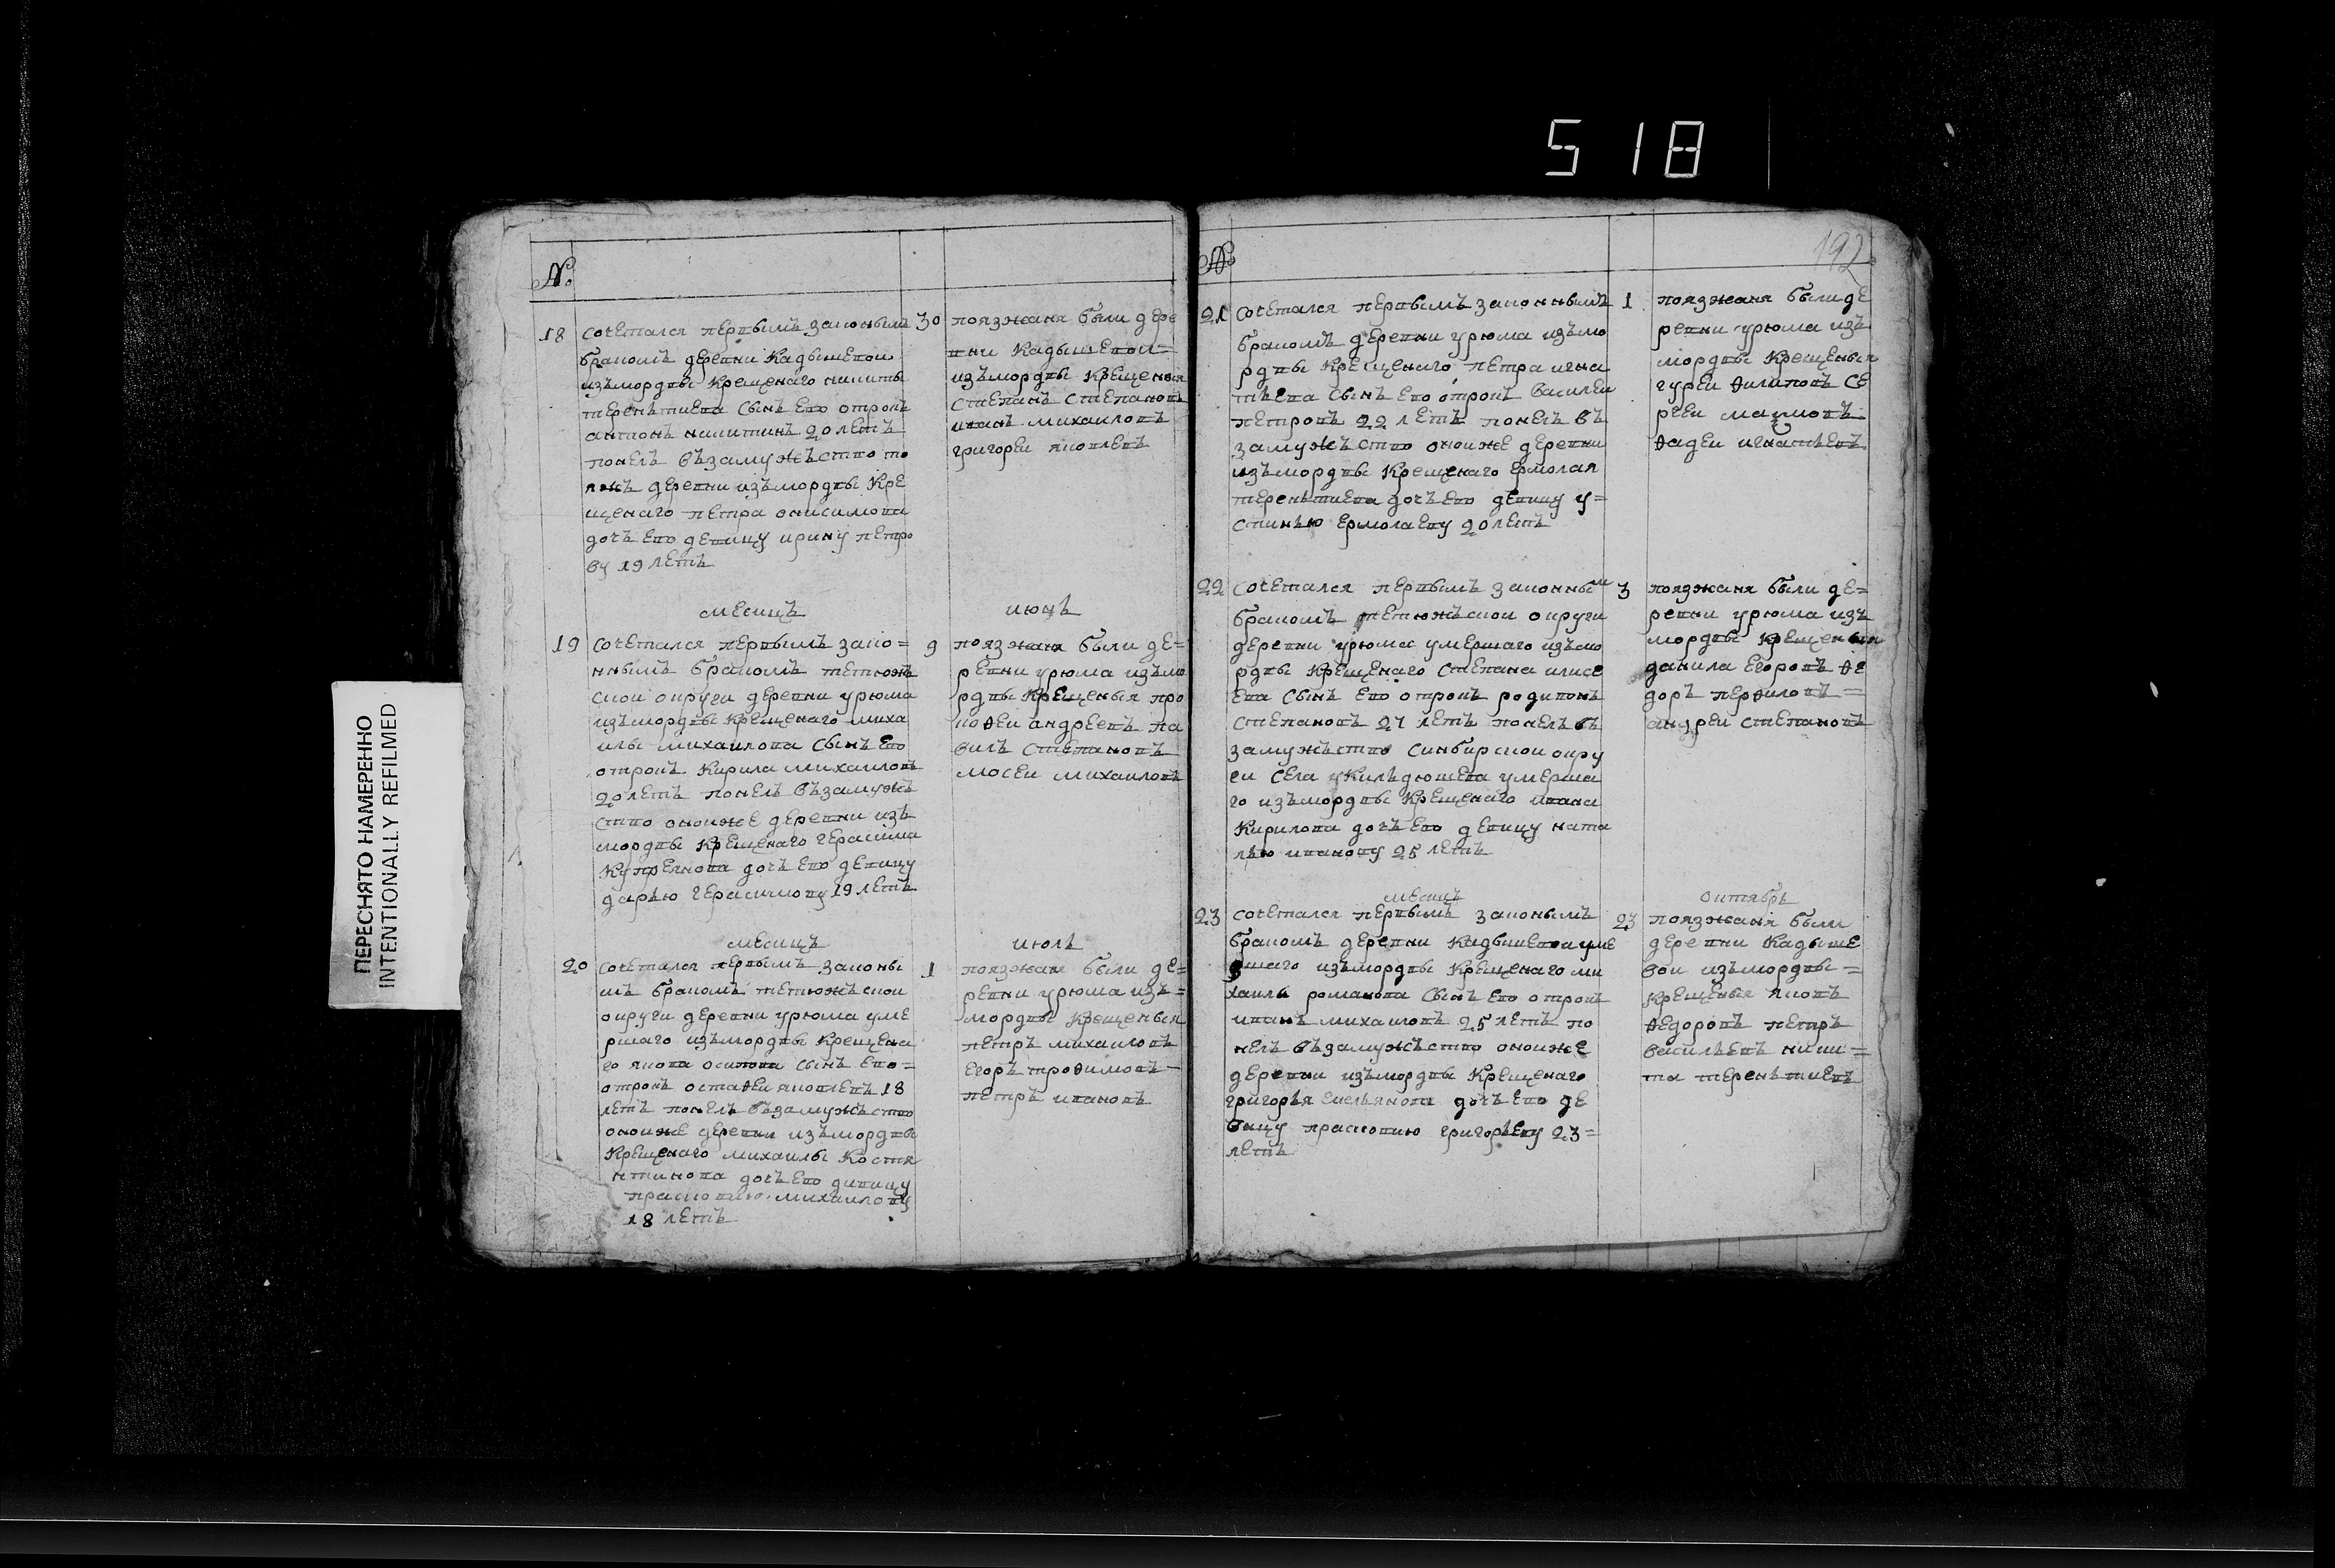 518
192
ПЕРЕСНЯТО НАМЕРЕННО
INTENTIONALLY REFILMED
№
18 сочетался первымъ законымъ 30
бракомъ деревни Кадышевои
изъмордвы Крещенаго никиты
терентиева сынъ ево отрокъ
антонъ никитинъ 20 летъ
понелъ въ замужъство то
яжъ деревни изъмордвы Кре
щенаго петра онисимова
дочъ ево девицу ирину петро
ву 19 летъ
поязжаня были дере
вни Кадышевои=
изъмордвы Крещеныя
Степанъ Степановъ
иванъ михаиловъ
григореи яковлевъ
месицъ июнъ
19 сочетался первымъ зако= 9
ннымъ бракомъ тетюжъ
скои округи деревни урюма
изъмордвы Крещенаго миха
илы михаилова сынъ ево
отрокъ Кирила михаиловъ
20 летъ понелъ въ замужъ
ство оноиже деревни изъ
мордвы Крещенаго герасима
Купреянова дочъ ево девицу
дарью герасимову 19 летъ
поязжаня были де=
ревни урюма изъмо
рдвы Крещеныя про
коѳеи андреевъ па
вилъ Степановъ
мосеи михаиловъ
месицъ июль
20 сочетался первымъ законы 1
мъ бракомъ тетюжъскои
округи деревни урюма уме
ршаго изъмордвы Крещена
го якова осипова сынъ ево=
отрокъ остаѳеи яковлевъ 18
летъ понелъ въ замужъство
оноиже деревни изъмордвы
Крещенаго михаилы Костя
нтинова дочъ ево дивицу
прасковию михаилову
18 летъ
поязжаня были де=
ревни урюма изъ=
мордвы Крещеныя
петръ михаиловъ
Егоръ троѳимовъ
петръ ивановъ
№
21 сочетался первымъ законнымъ 1
бракомъ деревни урюма изъмо
рдвы Крещенаго петра игна
тьева сынъ ево отрокъ Василеи
петровъ 22 летъ понелъ въ
замужъство оноиже деревни
изъмордвы Крещенаго Ермолая
терентиева дочъ ево девицу у=
стинью Ермолаеву 20 летъ
поязжаня были де
ревни урюма изъ
мордвы Крещеныя
гуреи ѳилиповъ се
ргеи
ѳадеи игнатьевъ
22 сочетался первымъ законны м 3
бракомъ тетюжъскои округи
деревни урюма умершаго изъмо
рдвы Крещенаго Степана елисе
ева сынъ ево отрокъ родивонъ
Степановъ 27 летъ понелъ въ
замужъство Синбирскои окру
ги села умерша
го изъмордвы Крещенаго ивана
Кирилова дочъ ево девицу ната
лью иванову 25 летъ
поязжаня были де=
ревни урюма изъ
мордвы Крещеныя
данила Егоровъ ѳе
доръ перѳиловъ=
андреи Степановъ
месицъ октябрь
23 сочетался первымъ законымъ 23
бракомъ деревни Кадышева уме
ршаго изъмордвы Крещенаго ми
хаилы романова сынъ ево отрокъ
иванъ михаиловъ 25 летъ по
нелъ въ замужъство оноиже
деревни изъмордвы Крещенаго
григорья Емельянова дочъ ево де
вицу прасковию григорьеву 23=
летъ
поязжаня были
деревни Кадыше
вои изъмордвы=
Крещеныя яковъ
ѳедоровъ петръ
васильевъ ники=
та терентиевъ